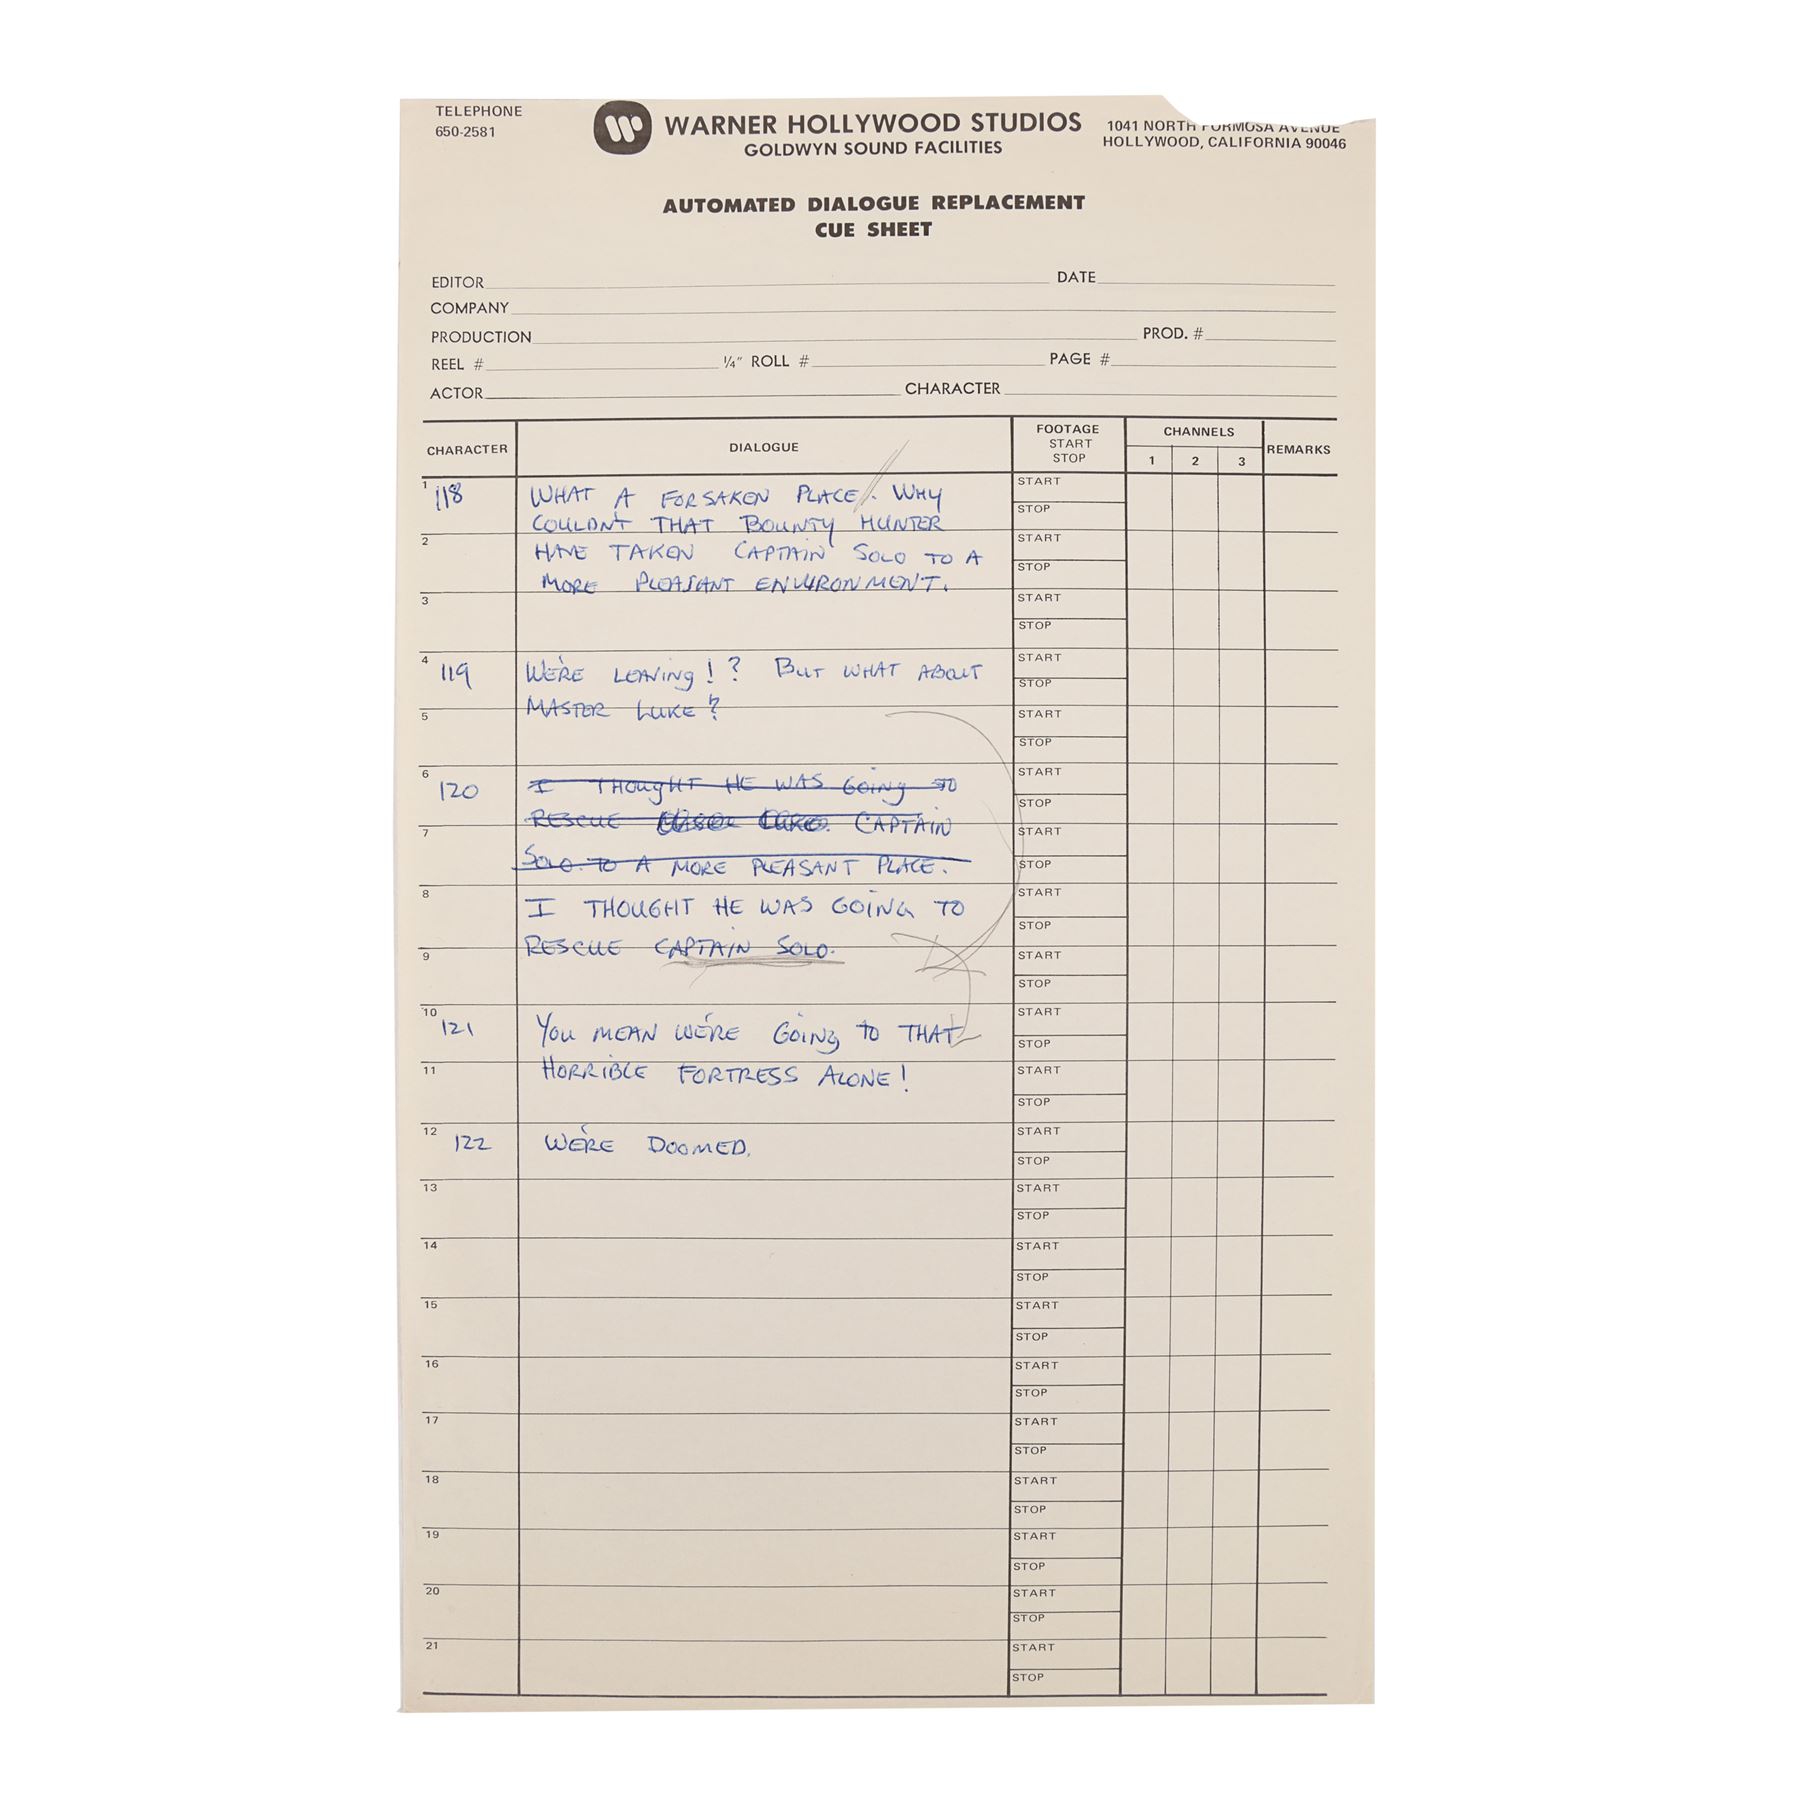 TELEPHONE
650-2581
WARNER HOLLYWOOD STUDIOS
GOLDWYN SOUND FACILITIES
1041 NORTH FORMOSA AVENUE
HOLLYWOOD, CALIFORNIA 90046
AUTOMATED DIALOGUE REPLACEMENT
CUE SHEET
EDITOR DATE
COMPANY
PRODUCTION PROD. #
REEL # ¼" ROLL # PAGE #
ACTOR CHARACTER
CHARACTER DIALOGUE FOOTAGE START STOP CHANNELS 1 2 3 REMARKS
1 118 WHAT A FORSAKEN PLACE. WHY START
COULDN'T THAT BOUNTY HUNTER STOP
2 HAVE TAKEN CAPTAIN SOLO TO A START
MORE PLEASANT ENVIRONMENT. STOP
3 START
STOP
4 119 WE'RE LEAVING!? BUT WHAT ABOUT START
MASTER LUKE? STOP
5 START
STOP
6 120 I THOUGHT HE WAS GOING TO START
RESCUE CAPTAIN STOP
7 START
SOLO TO A MORE PLEASANT PLACE. STOP
8 I THOUGHT HE WAS GOING TO START
RESCUE CAPTAIN SOLO. STOP
9 START
STOP
10 121 YOU MEAN WE'RE GOING TO THAT START
STOP
11 HORRIBLE FORTRESS ALONE! START
STOP
12 122 WE'RE DOOMED. START
STOP
13 START
STOP
14 START
STOP
15 START
STOP
16 START
STOP
17 START
STOP
18 START
STOP
19 START
STOP
20 START
STOP
21 START
STOP